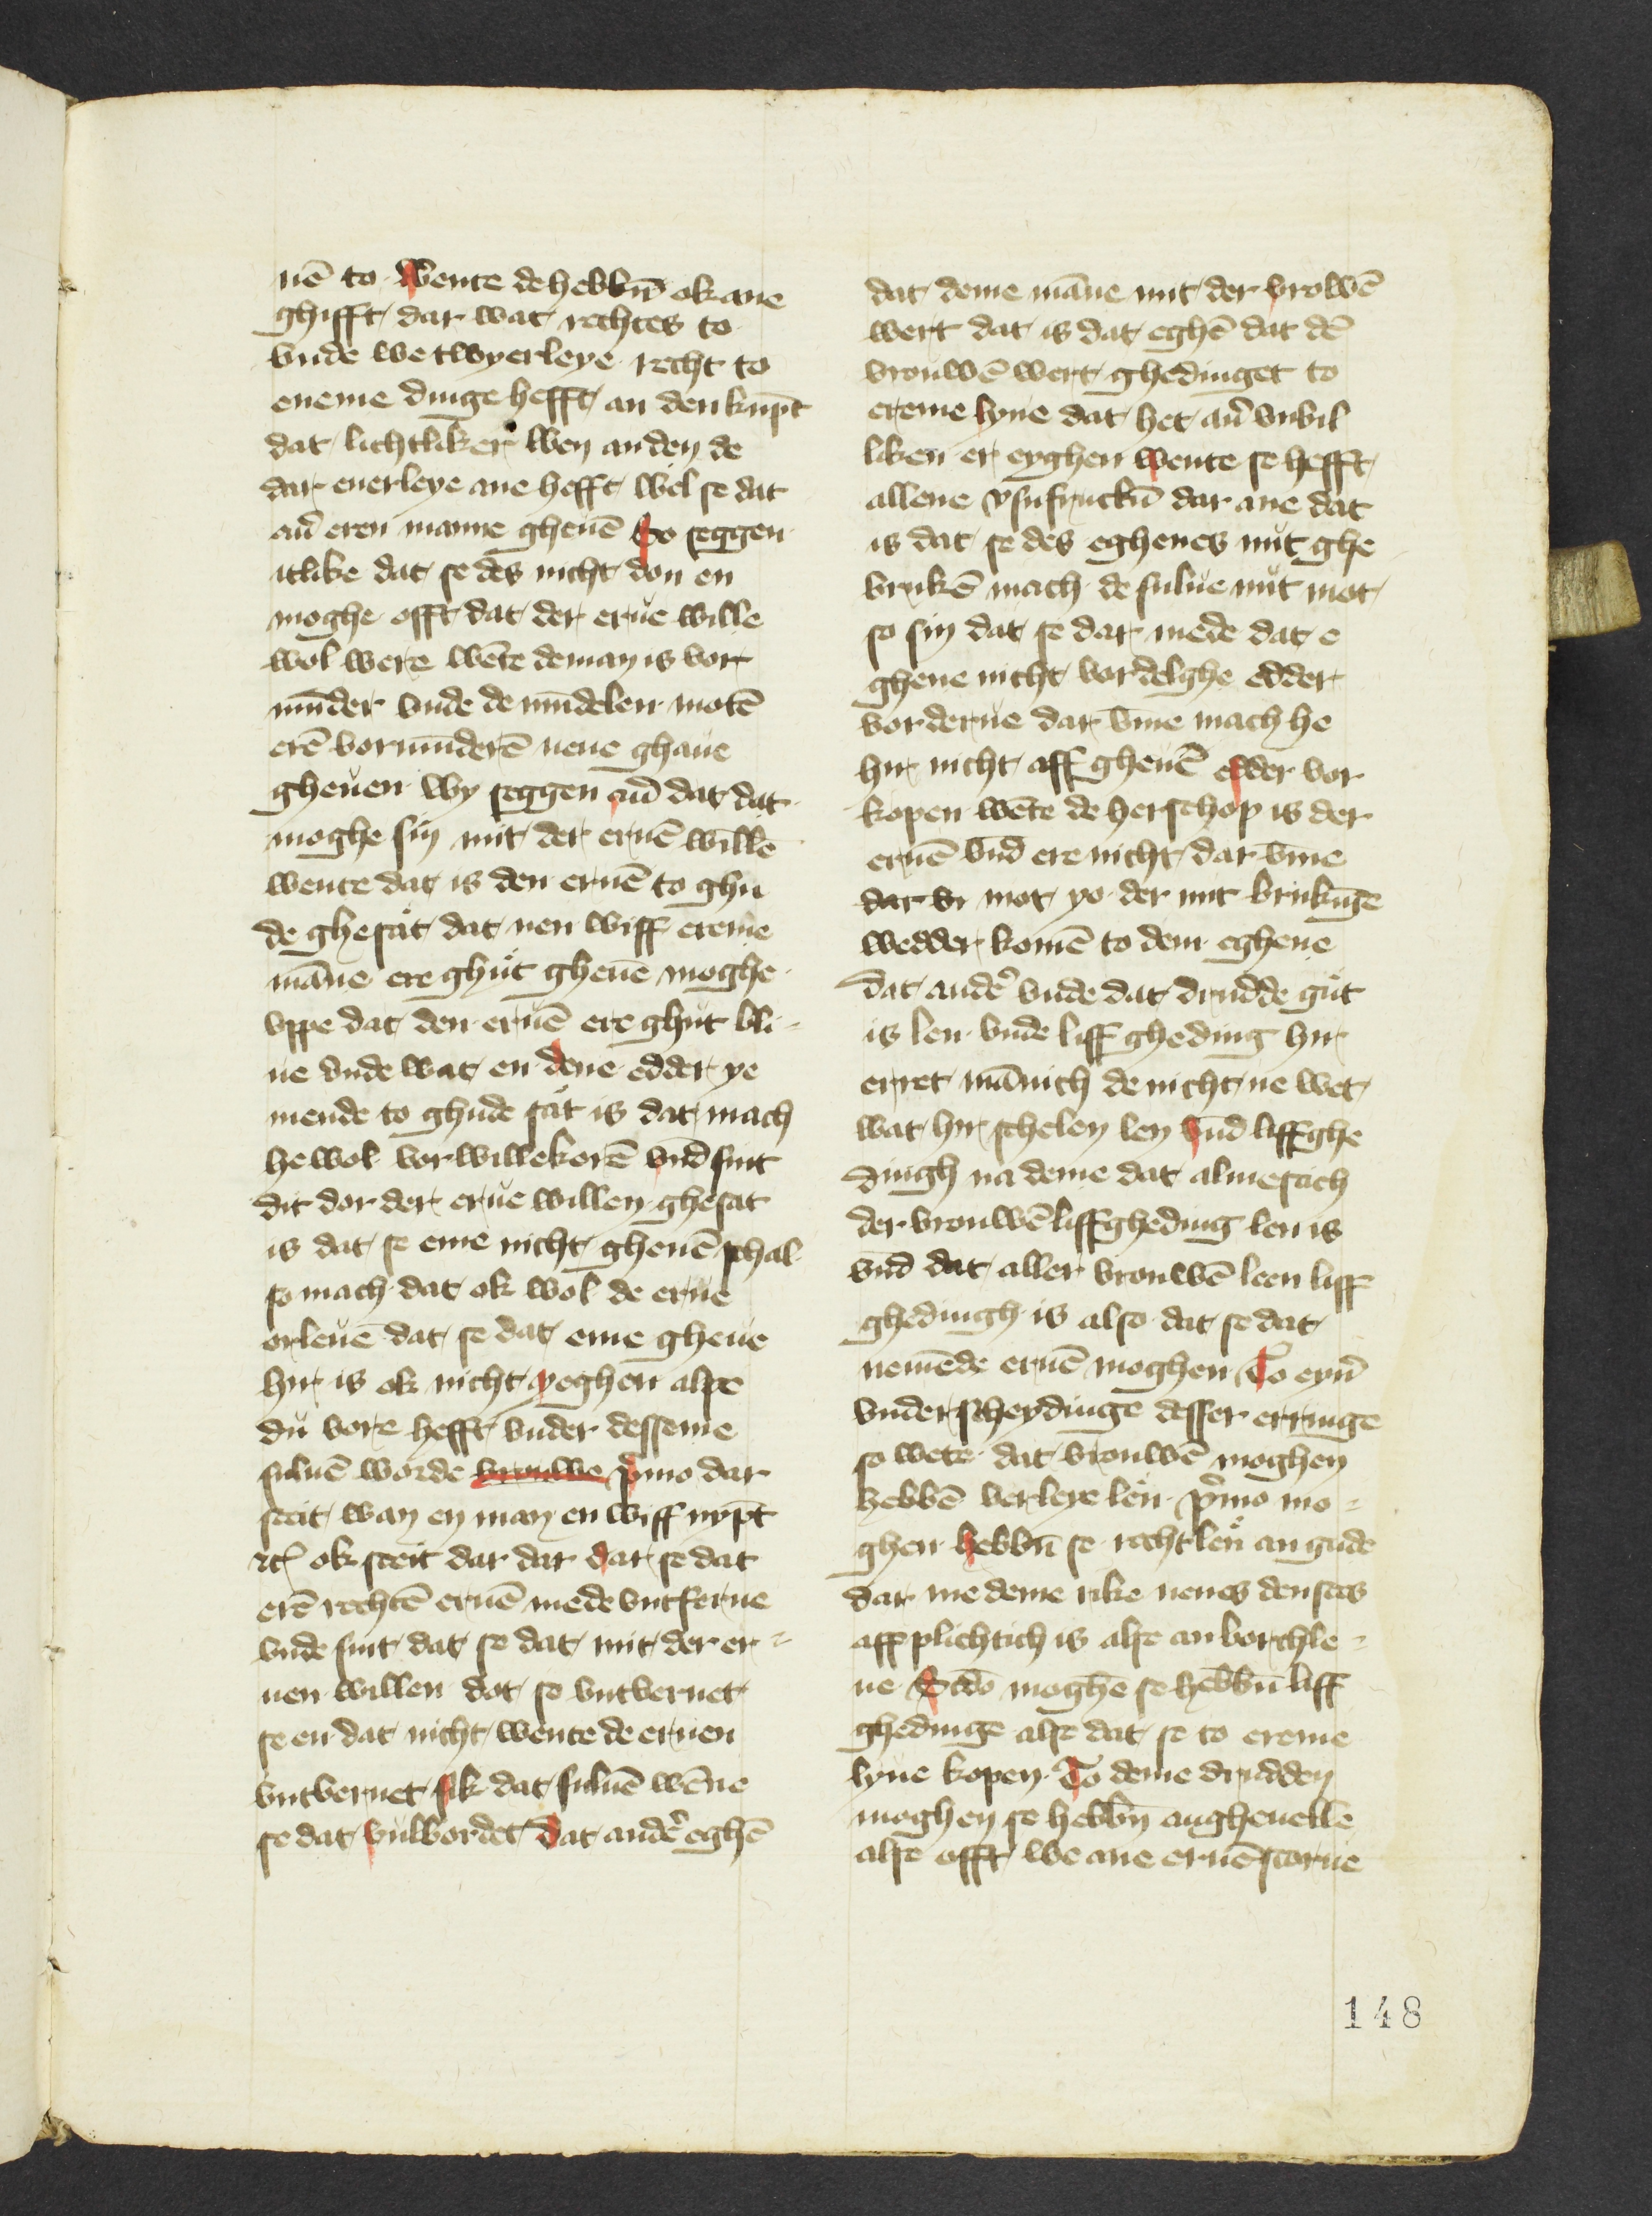 nē to wente de hebbn̄ ok ane
ghifft dar wat rechtes to
vnde we twyerleye recht to
eneme dinge hefft an den kūpt
dat lichtliker wen an den de
dar enerleye ane hefft wel se dat
aū eren manne gheuē So seggen
itlike dat se des nicht don en
moghe offt dat der erue wille
wol were wēte de man is vor
mūder vnde de mūdelen motē
erē vormūderē nene ghaue
gheuen wy seggen aū dat dat
moghe sin mit der eruē willē
wente dat is den eruē to ghu
de ghesat dat nen wiff ereme
māne ere ghut gheuē moghe
vppe dat den eruē ere ghut bli-
ue vnde wat en dene edder ye
mende to ghude sat is dat mach
he wol vorwillekorē vnd sint
dit dor der erue willen ghesat
is dat se eme nicht gheuē schal
so mach dat ok wol de erue
orleuē dat se dat eme gheue
hir is ok nicht yeghen alse
du vore hefft vnder desseme
suluē worde vrouwe p̄mo dar
steit wan en man en wiff nypt
etc ok steit dar dar dar se dat
erē rechtē eruē mede vntferne
vnde sint dat se dat mit der er-
uen willen dot so vntvernet
se en dat nicht wente de eruen
vntvernet sik dat suluē wēne
se dat vulbordet Dat andē eghē
dat deme māne mit der vrowē
wert dat is dat eghē dat dē
vrouwē wert ghedinget to
ereme lyue dat het aū vnbil
liken er eyghen wente se hefft
allene vsufructū dar ane dat
is dat se des eghenes nut ghe
brukē mach de sulue nut mot
so sin dat se dar mede dat e
ghene nicht vordelghe edder
vorderue dar vm̄e mach he
hir nicht aff gheuē edder vor
kopen wēte de herschop is der
eruē vnd ere nicht dar vm̄e
dat vr mot yo der nut brukūge
wedder komē to dem eghene
Dat andē vnde dat drudde gut
is len vnde liff gheding hir
erret mānich de nicht ne wet
wat hir schelen len vnd liffghe
dingh na deme dat almestich
der vrouwē liffgheding len is
vnd dat aller vrouwē leen liff
ghedingh is also dat se dat
nemēde eruē moghen To eyn̄
vnderscheydinge desser erringe
so wete dat vrouwē moghen
hebbē verleye len p̄mo mo-
ghen hebbn̄ se recht len an gude
dar me deme rike nenes denstes
aff plichtich is alse an borchle-
ne Scd̄o moghē se hebbn̄ liff
ghedinge alse dat se to ereme
lyue kopen To deme drudden
moghen se hebbn̄ angheuelle
alse offt we ane eruē storue
148